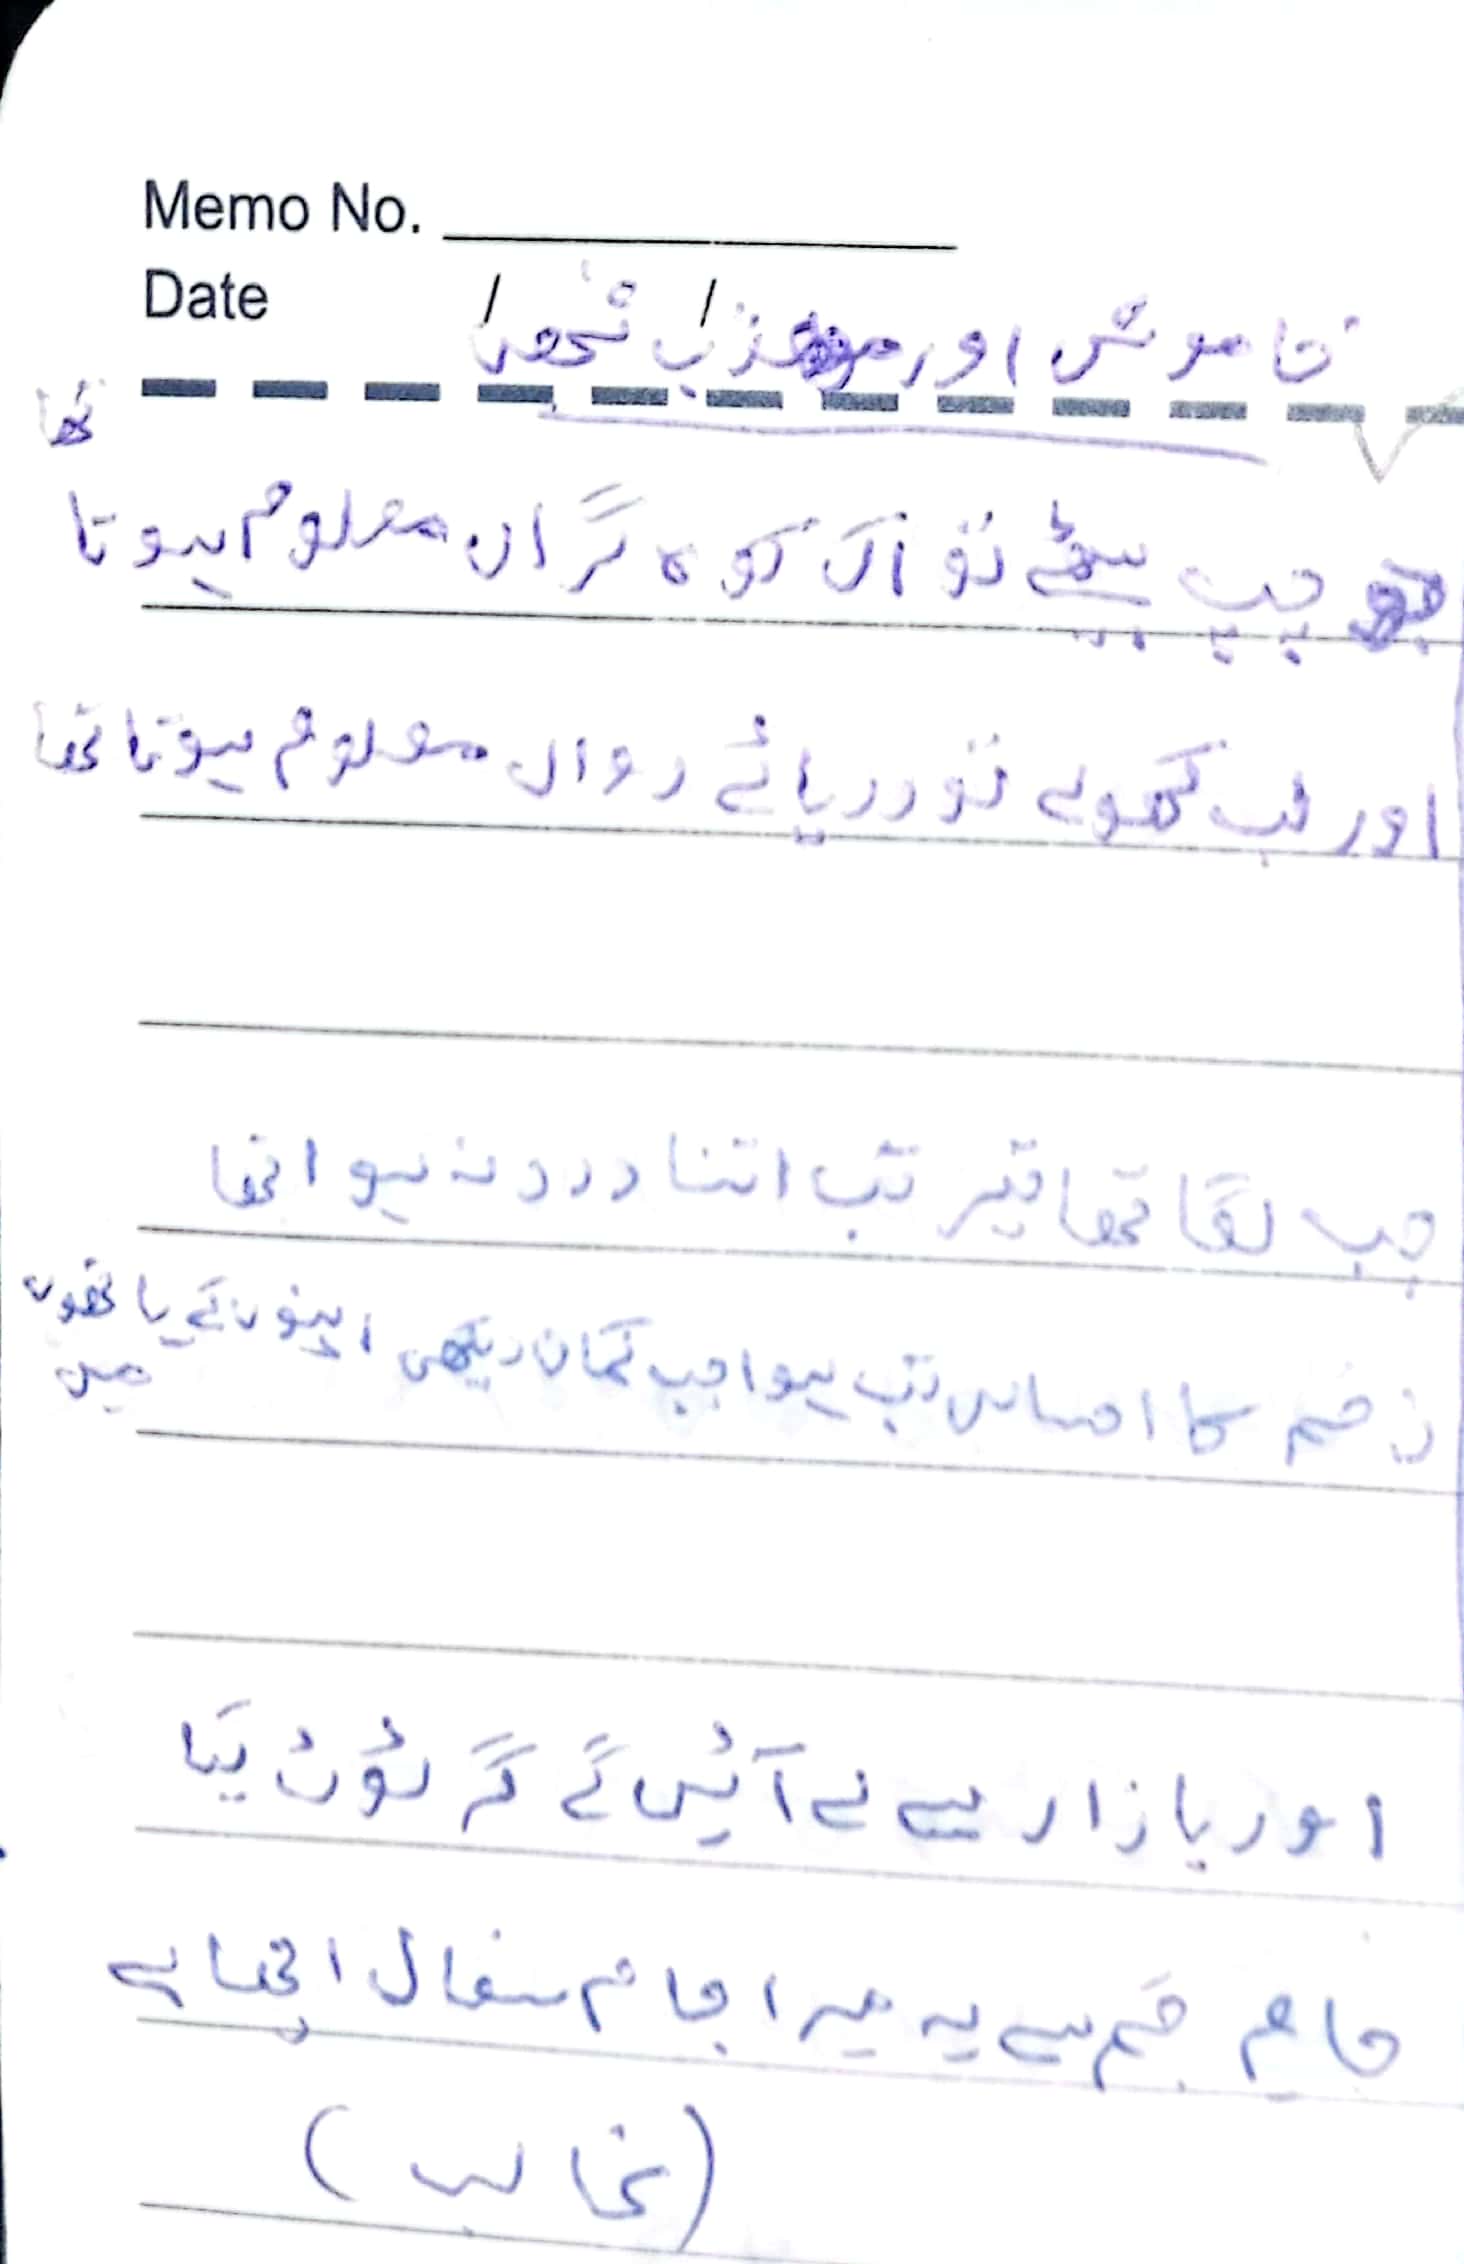 Memo No.
Date / /
خاموش اور مہذب شخص
چپ بیٹھے تو اک کوہ گراں معلوم ہوتا تھا
اور لب کھولے تو دریائے رواں معلوم ہوتا تھا
جب لگا تھا تیر تب اتنا درد نہ ہوا تھا
زخم کا احساس تب ہوا جب کمان دیکھی اپنوں کے ہاتھوں
میں
اور بازار سے لے آئیں گے گر ٹوٹ گیا
جام جم سے یہ میرا جام سفال اچھا ہے
(غالب)